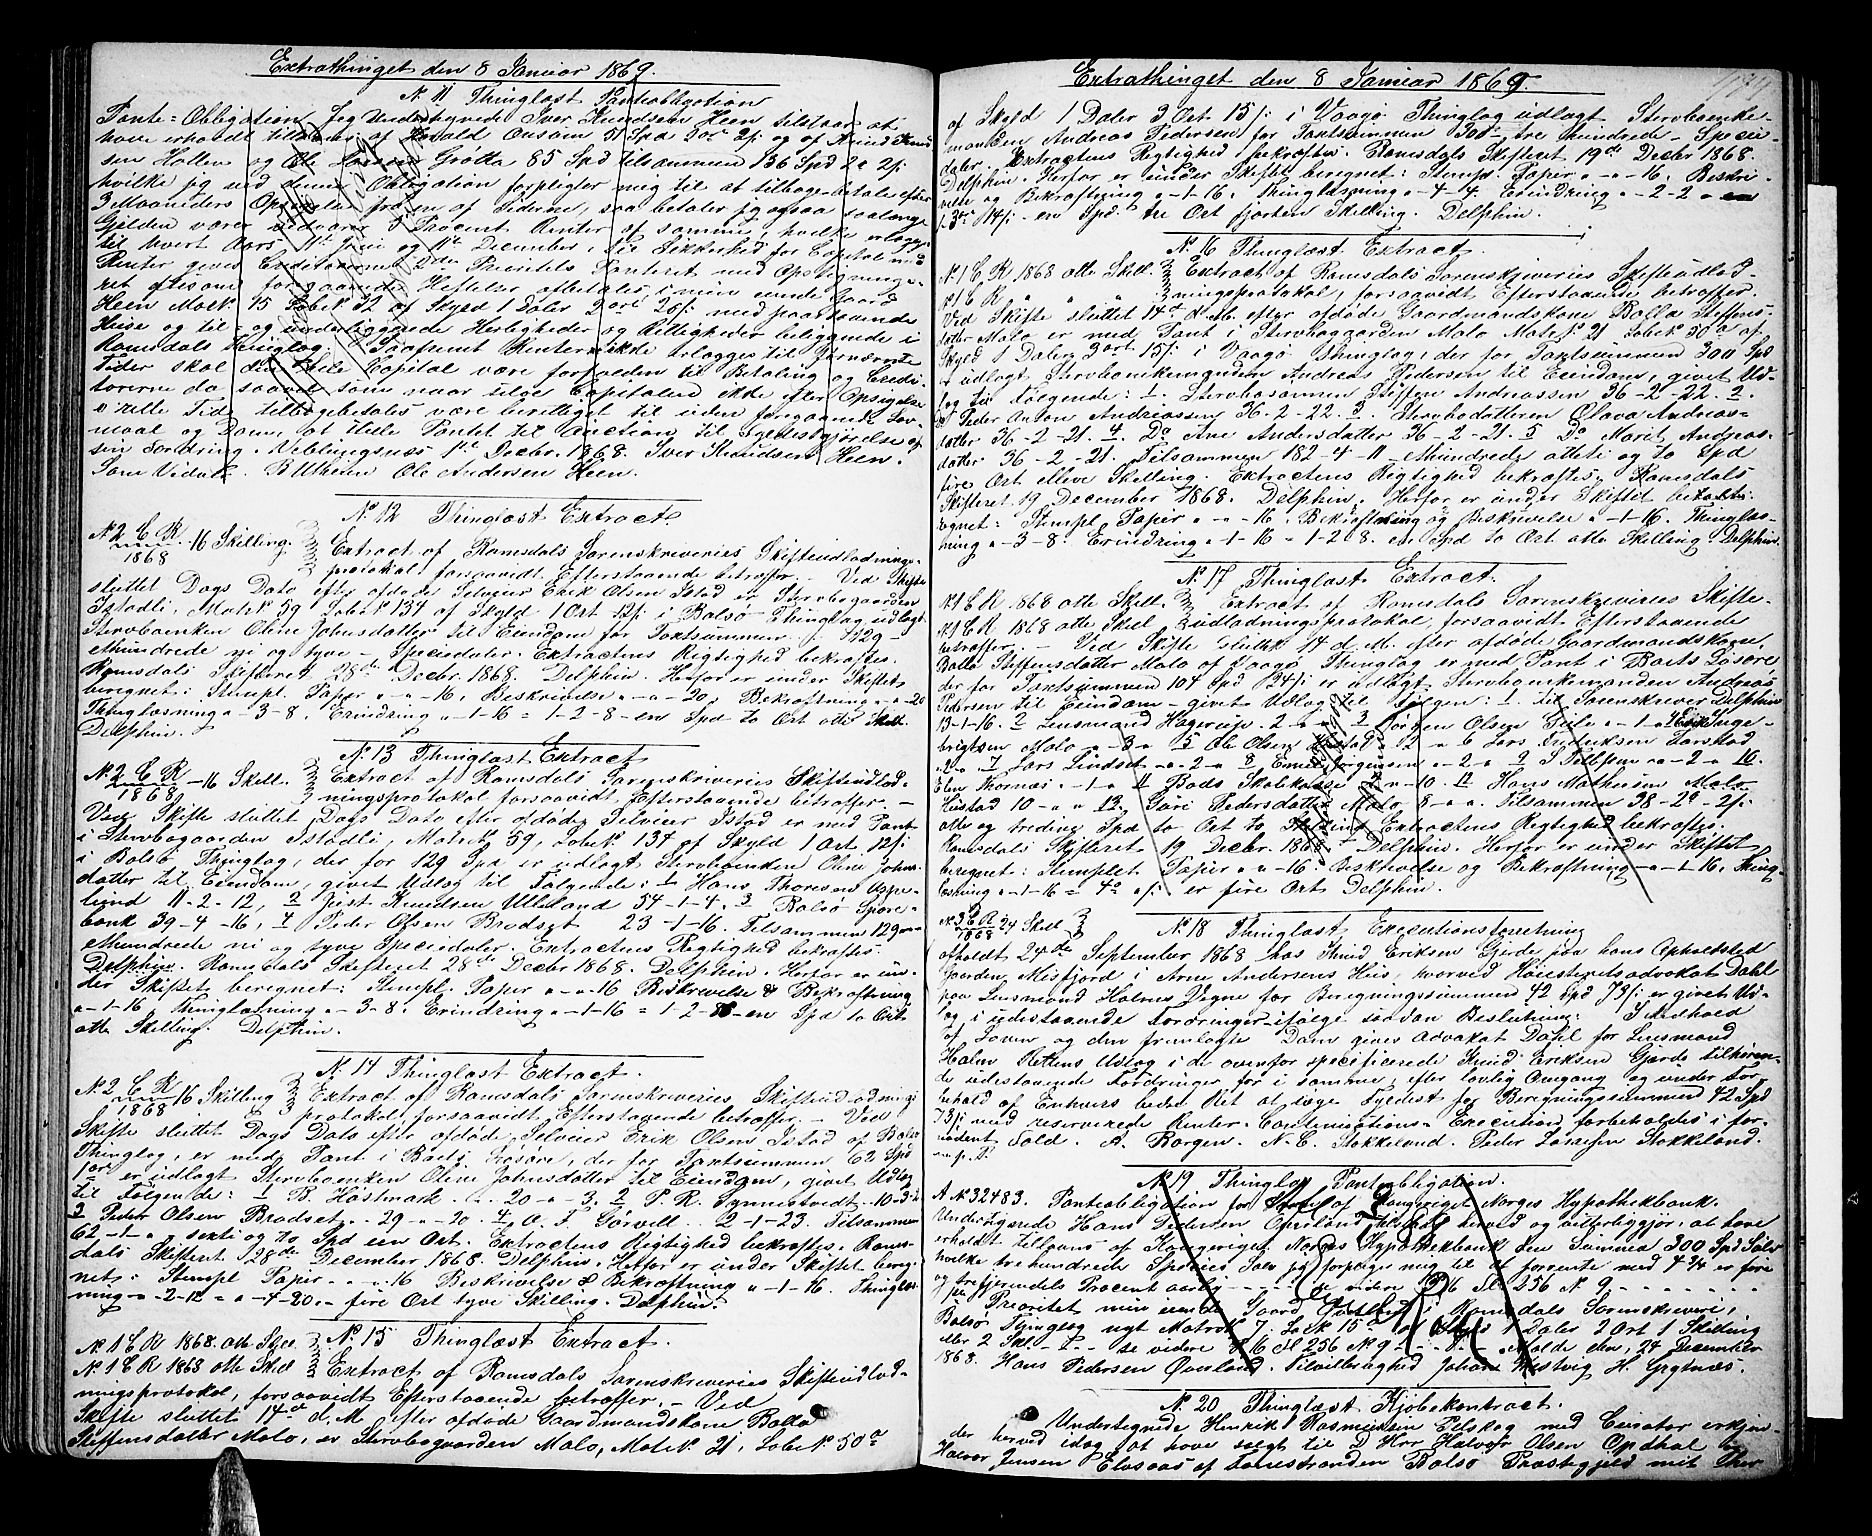 Extrathinget den 8 Januar 1869.
N. 11 Thinglæst Panteobligation
Pante-Obligation. Jeg Undertegnede Iver Knudsen Heen tilstaar at
have erholdt tillaans af Ewald Onsum 51 Spd 2 ort 2 /: og af Knud Knud
sen Hollen og Ole Larsen Grøtta 85 Spd tilsammen 136 Spd 2 o 2 /:
hvilke jeg ved denne Obligation forpligter meg til at tilbage-betale efter
3 Maaneders Opsigelse fra en af Siderne, saa betaler jeg ogsaa saalænge
Gjelden varer vedvarer 5 Procent Renter af samme, hvilke erlægges
til hvert Aars 11te Juni og 11te December. Til Sikkerhed for Capital med
Renter gives Creditorerne 2den Prioritets Panteret med Opsigning-
ret eftersom foregaaende Heftelser afbetales, i min eiende Gaard
Heen Mat. N. 15 Løbe N. 32 af Skyld 1 Daler 2 ort 20 /: med paastaaende
Huse og til- og underliggende Herligheder og Rettigheder beliggende i
Romsdals Thinglag. Saafremt Renterne ikke erlægges til fornævnte
Tider skal den hele Capital være forfalden til Betaling og Credi-
torerne da saavel som naar ulige Capitalen ikke efter Opsigelse
i rette Tide tilbagebetales være berettiget til uden foregaaende Lov-
maal og Dom, at stille Pantet til Auction til Fyldestgjørelse af
sin Fordring. Veblungsnæs 1te Decbr. 1868. Iver Knudsen Heen.
Som Vidner. B. Utheim Ole Andersen Heen.
N. 12 Thinglæst Extract.
N. 2 C. R. 1868 16 Skilling. Extract af Romsdals Sorenskriveries Skifteudlodnings-
protokol, forsaavidt Efterstaaende betræffer. - Ved Skifte
sluttet Dags Dato efter afdøde Selveier Erik Olsen Istad er Stervbogaarden
Istadli, Mat. N. 59 Løbe N. 134 af Skyld 1 Ort 12 /: i Bolsø Thinglag udlagt
Stervboenken Oline Johnsdatter til Eiendom for Pantsummen 129 -
Ethundrede ni og tyve - Speciedaler. Extractens Rigtighed bekræftes.
Romsdals Skifteret 28de Decbr. 1868. Delphin. Herfor er under Skiftet
beregnet: Stempl. Papir " - " - 16, Beskrivelse " - " - 20, Bekræftning " - " - 20
Thinglæsning " - 3 - 8. Erindring " - 1 - 16 = 1 - 2 - 8 - en Spd to Ort otte Skill.
Delphin.
N. 13 Thinglæst Extract
N. 2 C. R. 1868 - 16 Skill. Extract af Romsdals Sorenskriveries Skifteudlod-
ningsprotokol forsaavidt Efterstaaende betræffer. -
Ved Skifte sluttet Dags Dato efter afdøde Selveier Istad er med Pant
i Stervbogaarden Istadli, Mat. N. 59, Løbe N. 134 af Skyld 1 Ort 12 /:
i Bolsø Thinglag, der for 129 Spd er udlagt Stervboenken Oline Johns-
datter til Eiendom, givet Udlæg til Følgende: 1 Hans Thoresen
lund 11-2-12, 2 Knudsen Utleland 54-1-4. 3 Bolsø Spare-
bank 39-4-16, 4 Peder Olsen Bradset 23-1-16. Tilsammen 129
Ethundrede ni og tyve Speciedaler. Extractens Rigtighed bekræftes.
Delphin. Romsdals Skifteret 28de Decbr 1868. Delphin. Herfor er un-
der Skiftet beregnet: Stempl. Papir " - " - 16 Beskrivelse & Bekræftning
" - 1 - 16 Thinglæsning " - 3 - 8. Erindring " - 1 - 16 = 1 - 2 - 8 - en Spd to Ort
otte Skilling. Delphin.
N. 14 Thinglæst Extract.
N. 2 C. R. 1868 16 Skilling Extract af Romsdals Sorenskriveries Skifteudlodnings
protokol forsaavidt Efterstaaende betræffer. - Ved
Skifte sluttet Dags Dato efter afdøde Selveier Erik Olsen Istad af Bolsø
Thinglag, er med Pant i Boets Løsøre, der for Pantsummen 62 Spd
1 ort er udlagt Stervboenken Oline Johnsdatter til Eiendom, givet Udlæg
til Følgende: 1 B. Hastmark .. 20 - " - 3. 2 P. R. 10-3-2
3 Peder Olsen Bradset .. 29 - " - 20. 4 O. F. Sørvell .. 2-1-23. Tilsammen
62-1- " sexti og to Spd een Ort. Extractens Rigtighed bekræftes. Roms-
dals Skifteret 28de December 1868. Delphin. Herfor er under Skiftet bereg-
net: Stempl. Papir " - " 16 Beskrivelse & Bekræftning " - 1 - 16. Thinglæs-
ning - " - 2 - 12 = " - 4 - 20 - fire Ort tyve Skilling. Delphin.
N. 15 Thinglæst Extract.
N. 1 C R 1868 otte Skill.
N. 1 C R 1868 otte Skill Extract af Romsdals Sorenskriveries Skifteudlod-
ningsprotokol, forsaavidt Efterstaaende betræffer. - Ved
Skifte sluttet 14de d. M. efter afdøde Gaardmandskone Balla
Steffensdatter Malo, er Stervbogaarden Malo, Mat. N. 21, Løbe N. 50 a
Extrathinget den 8 Januar 1869.
af Skyld 1 Daler 3 Ort 15 /: i Vaagø Thinglag udlagt Stervboenke-
manden Andreas Pedersen for Pantsummen 300 - tre hundrede - Specie-
daler. Extractens Rigtighed bekræftes. Romsdals Skifteret 19de Decbr 1868.
Delphin. Herfor er under Skiftet beregnet: Stempl. Papir " - " - 16. Beskri-
velse og Bekræftning " - 1 - 16. Thinglæsning " - 4 - 4. Erindring " - 2 - 2 =
1. 3 ort 14 /: - en Spd. tre Ort fjorten Skilling. Delphin.
N. 16 Thinglæst Extract.
N. 1 C R 1868 otte Skill. Extract af Romsdals Sorenskriveries Skifteudlod-
N. 1 C R " " " ningsprotokol, forsaavidt Efterstaaende betræffer.
Ved Skifte sluttet 14de d. M. efter afdøde Gaardmandskone Balla Steffens-
datter Malo er med Pant i Stervbogaarden Malo Mat. N. 21 Løbe N. 50 a af
Skyld 1 Daler 3 ort 15 /: i Vaagø Thinglag, der for Pantsummen 300 Spd
er udlagt Stervboenkemanden Andreas Pedersen til Eiendom, givet Ud-
læg til Følgende: 1. Stervbosønnen Steffen Andreassen 36-2-22. 2.
Do Peder Anton Andreassen 36-2-22. 3. Stervbodatteren Olava Andreas-
datter 36-2-21. 4. Do Ane Andersdatter 36-2-21. 5 Do Marit Andreas-
datter 36-2-21. Tilsammen 182-4-11 - Ethundrede otteti og to Spd
fire Ort elleve Skilling. Extractens Rigtighed bekræftes. Romsdals
Skifteret 19 December 1868. Delphin. Herfor er under Skiftet be-
regnet: Stempl. Papir " - " - 16. Bekræftning og Beskrivelse " - 1 - 16. Thinglæs-
ning " - 3 - 8. Erindring " - 1 - 16 = 1 - 2 - 8. en Spd to Ort otte Skilling. Delphin.
N. 17 Thinglæst Extract.
N. 1 C R 1868 otte Skill. Extract af Romsdals Sorenskriveries Skifte-
N. 1 C R 1868 otte Skill udlodningsprotokol, forsaavidt Efterstaaende
betræffer. - Ved Skifte sluttet 14 d. M. efter afdøde Gaardmandskone
Balla Steffensdatter Malo af Vaagø Thinglag er med Pant i Boets Løsøre
der for Pantsummen 104 Spd 24 /: er udlagt Stervboenkemanden Andreas
Pedersen til Eiendom - givet Udlæg til Følgen: 1. Til Sorenskriver Delphin
13-1-16. 2 Lensmand Hagerup. 2 - " - " 3 Jørgen Olsen - " - 1 - " 4 Erik Inge-
brigtsen Malo " - 3 " 5 Ole Olsen Hustad " - 12 " 6 Lars Fredriksen Farstad
" 2 - " 7 Lars Lindset - " - 2 - " 8 Ernst Jørgensen - " - 2 - " 9 J. Tellefsen " - " - 2 - " 10.
Elen Thornæs - " - 1 - " 11 Buds Skolekasse " - 10. 12 Hans Mathesen Malo
Hustad 10 - " " 13. Guri Pedersdatter Malo 8 - " ". Tilsammen 38 - 2 o - 2 /:
otte og treding Spd to Ort to Skilling. Extractens Rigtighed bekræftes.
Romsdals Skifteret 19 Decbr. 1868. Delphin. Herfor er under Skiftet
beregnet: Stemplet Papir " - " 16. Beskrivelse og Bekræftning - " - 1 - 16. Thing-
læsning - " - 1 - 16 = 4 o " /: er fire Ort. Delphin.
N. 18 Thinglæst Executionsforretning
N. 3 C. R. 1868 24 Skill
afholdt 24de September 1868 hos Knud Eriksen Gjerde paa hans Opholdsted
Gaarden Misfjord i Arne Andersens Hus, hvorved Høiesteretsadvokat Dahl
paa Lensmand Holms Vegne for Beregningssummen 42 Spd 73 /: er givet Ud-
læg i udestaaende Fordringer ifølge saadan Beslutning: I Medhold
af Loven og den fremlagte Dom gives Advokat Dahl for Lensmand
Holm Rettens Udlæg i de ovenfor specificerede Knud Eriksen Gjerde tilhøren-
de udestaaende Fordringer for i samme, efter lovlig Omgang og under For-
behold af Enhvers bedre Ret at søge Fyldest for Beregningssummen 42 Spd
73 /: med reserverede Renter. Continuations-Execution forbeholdes i for-
nødent Fald. A. Borgen. N. E. Stokkeland. Peder Larsen Stokkeland.
N. 19 Thinglæst Panteobligation.
A. N. 32483. Panteobligation for Kongeriget Norges Hypothekbank.
Undertegnede Hans Pedersen Øverland tilstaar herved og vitterliggjør, at have
erholdt tillaans af Kongeriget Norges Hypothekbank den Summa 300 Spd Sølv
hvilke trehundrede Species Sølv jeg forpligter mig til at forrente med 4 3/4 er fire
og trefjerdedels Procent aarlig - - - - se siden B 16 Sl. 256 N. 9 - - - -
Prioritet min eiende Gaard Øverland i Romsdals Sorenskriveri,
Bolsø Thinglag nyt Matr. N. 7. Lø. N. 15 a af Skyld 1 Daler 2 Ort 1 Skilling
eller 2 Skl. - - - se videre B 16 Sl 256 N. 9 - - - - Molde den 24 December
1868. Hans Pedersen Øverland. Til Vitterlighed Johan H.
N. 20 Thinglæst Kjøbekontract.
Undertegnede Henrik Rasmussen med Curator erkjen-
der herved idag at have solgt til D. Hrr. Halvor Olsen Opdhal &
Halvor Jensen Elvsaas af Tønestranden Bolsø Præstegjeld mit